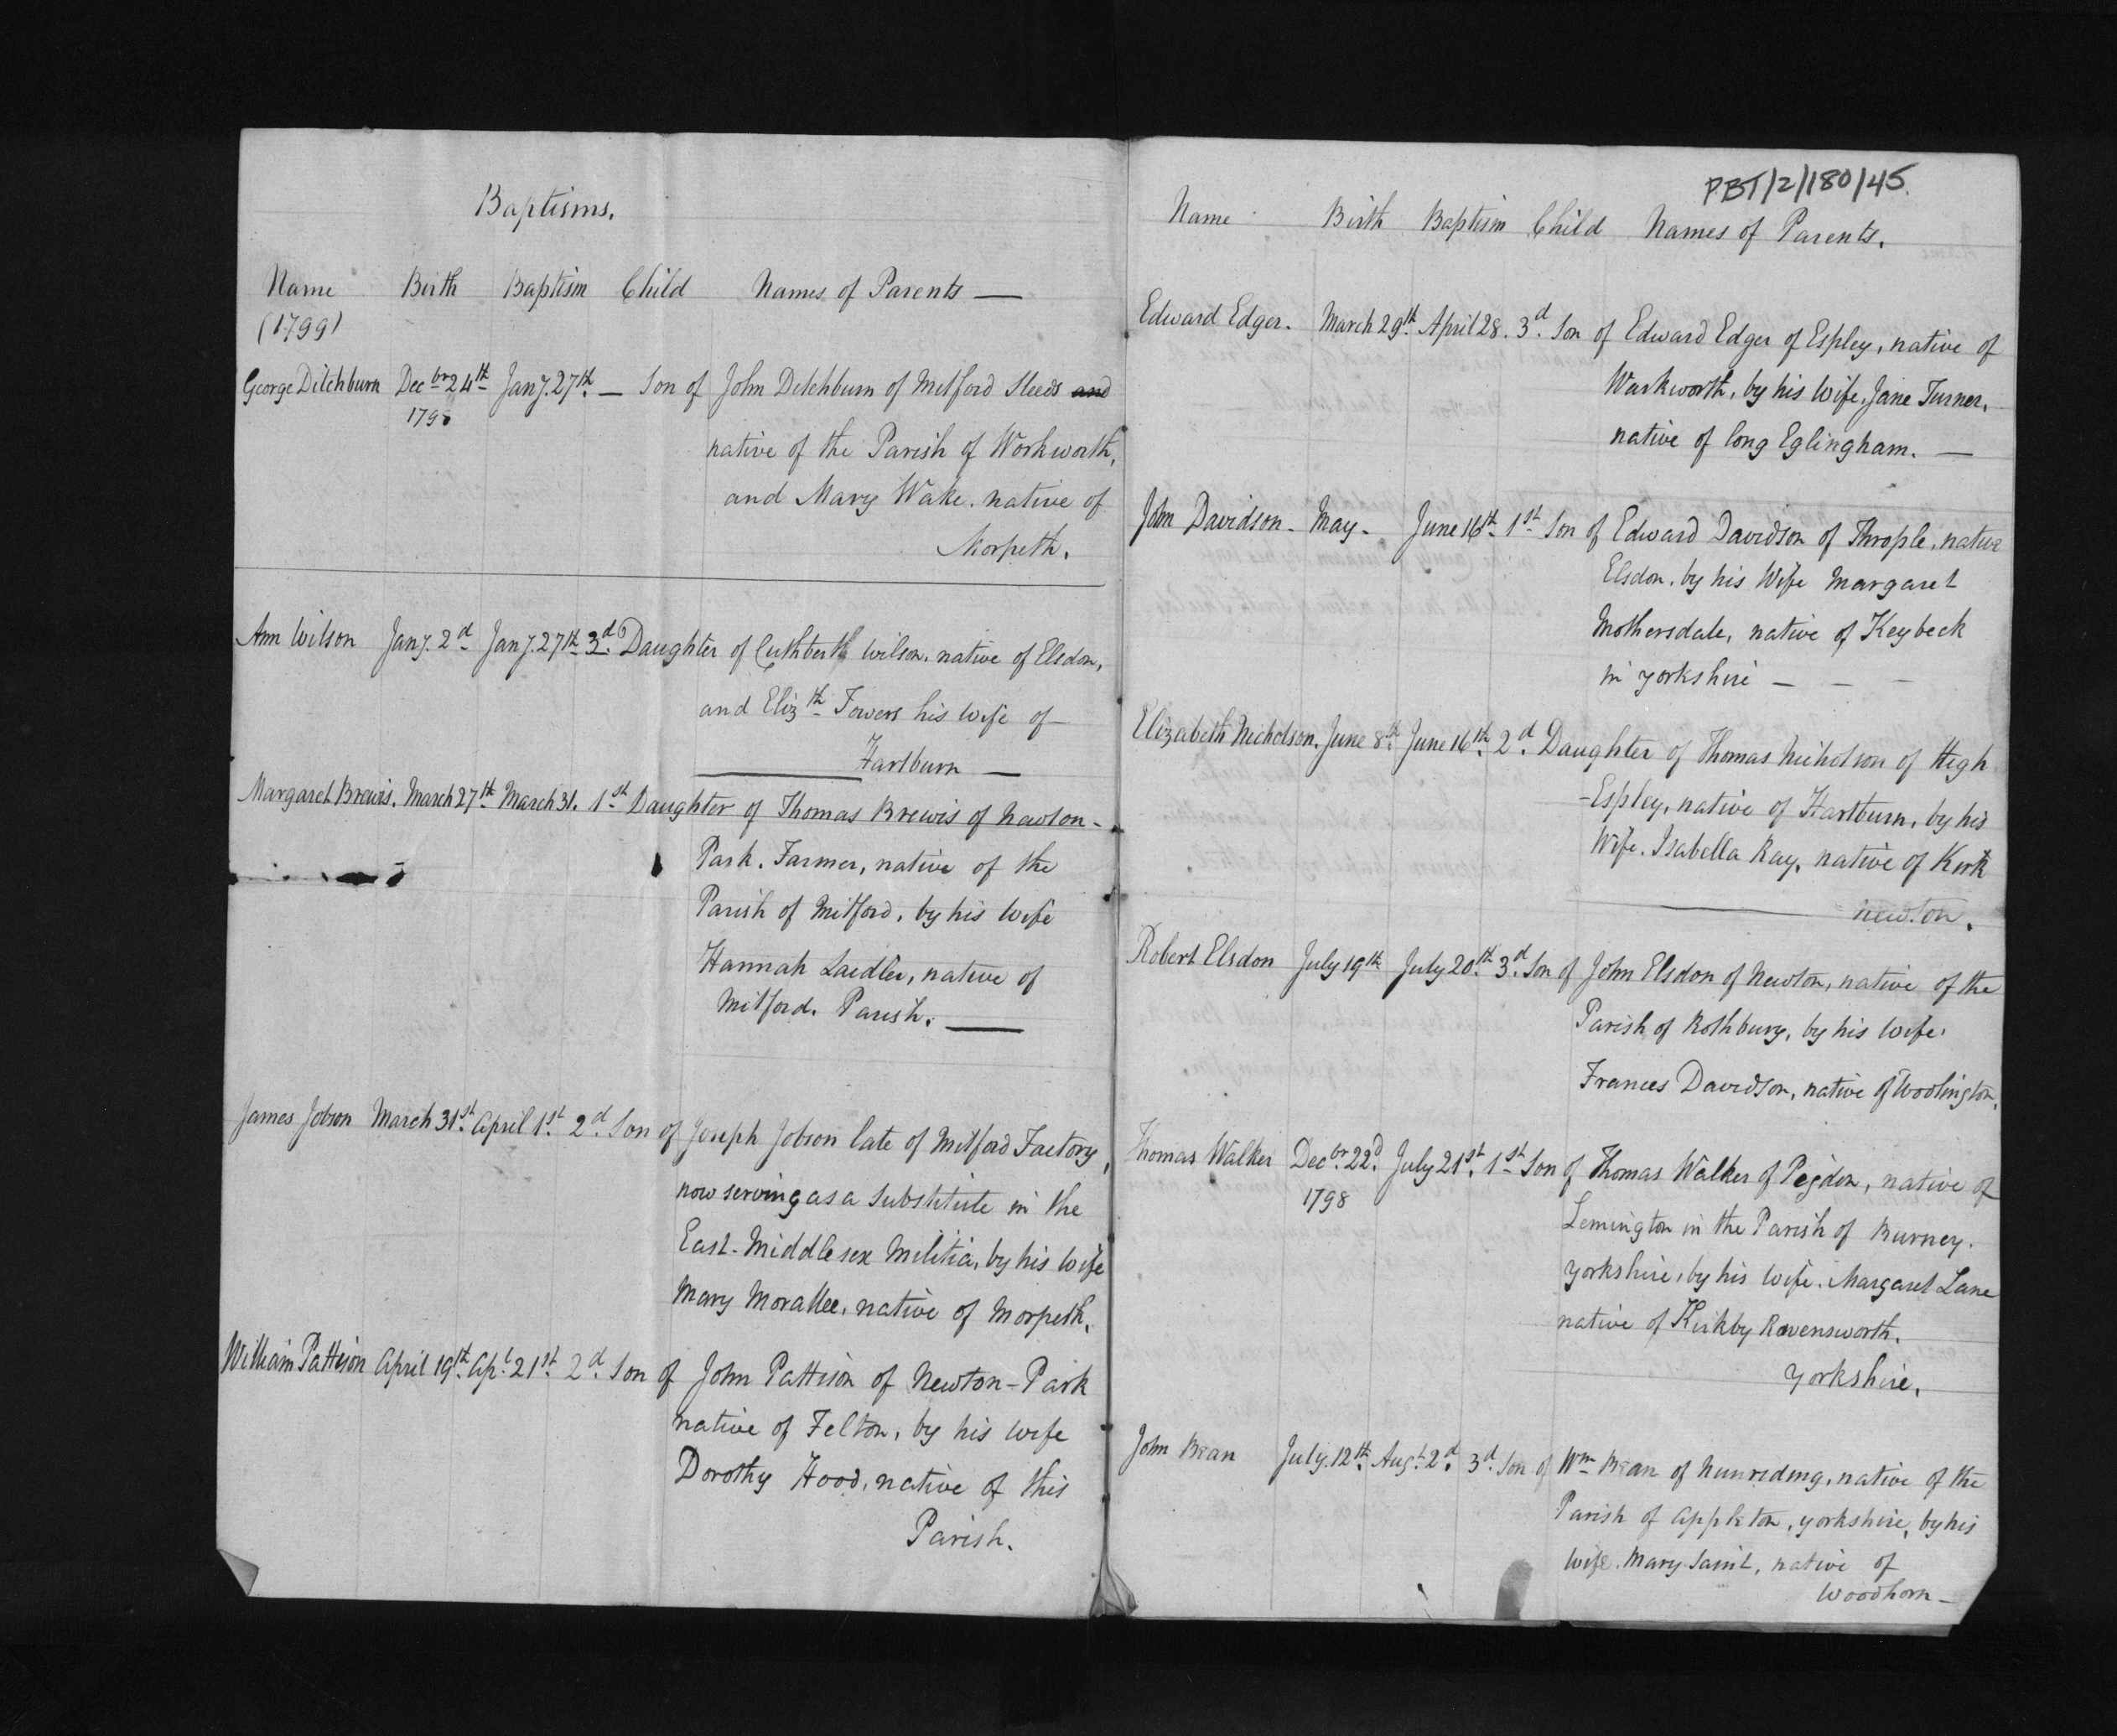 Baptisms.
Name Birth Baptism Child Names of Parents —
(1799)
George Ditchburn Decbr 24th Jany. 27th. — Son of John Ditchburn of Mitford Steeds and
1798
native of the Parish of Workworth,
and Mary Wake. native of
Morpeth.
Ann Wilson Jany. 2d Jany. 27th 3d. Daughter of Cuthberth Wilson. native of Elsdon,
and Elizth Towers his wife of
Hartburn —
Margaret Brewis. March 27th March 31. 1st Daughter of Thomas Brewis of Newton-
Park. Farmer, native of the
Parish of Mitford, by his wife
Hannah Laidler, native of
Mitford. Parish. —
James Jobson March 31st. April 1st. 2d. Son of Joseph Jobson late of Mitford Factory,
now serving as a Substitute in the
East-Middlesex Militia, by his wife
Mary Morallee, native of Morpeth.
William Pattison April 19th. Apl. 21st. 2d. Son of John Pattison of Newton-Park
native of Felton, by his wife
Dorothy Hood, native of this
Parish.
PBT/2/180/45.
Name Birth Baptism Child Names of Parents.
Edward Edger. March 29th. April 28. 3d. Son of Edward Edger of Espley, native of
Warkworth, by his Wife, Jane Turner,
native of long Eglingham. —
John Davidson - May - June 16th. 1st Son of Edward Davidson of Throple, native
Elsdon, by his Wife Margaret
Mothersdale, native of Keybeck
in yorkshire — — —
Elizabeth Nicholson. June 8th. June 16th. 2d. Daughter of Thomas Nicholson of High
-Espley, native of Hartburn, by his
Wife. Isabella Ray, native of Kirk
newton.
Robert Elsdon July 19th July 20th. 3d. Son of John Elsdon of Newton, native of the
Parish of Rothbury, by his wife.
Frances Davidson, native of Woolington.
Thomas Walker Decbr. 22d. July 21st. 1st Son of Thomas Walker of Pegdon, native of
1798
Lemington in the Parish of Burney.
yorkshire, by his wife. Margaret Lane
native of Kirkby Ravensworth.
yorkshire.
John Bean July. 12th. Augt. 2d. 3d. Son of Wm Bean of Nunriding, native of the
Parish of Appleton, yorkshire, by his
wife. Mary Saint, native of
Woodhorn —